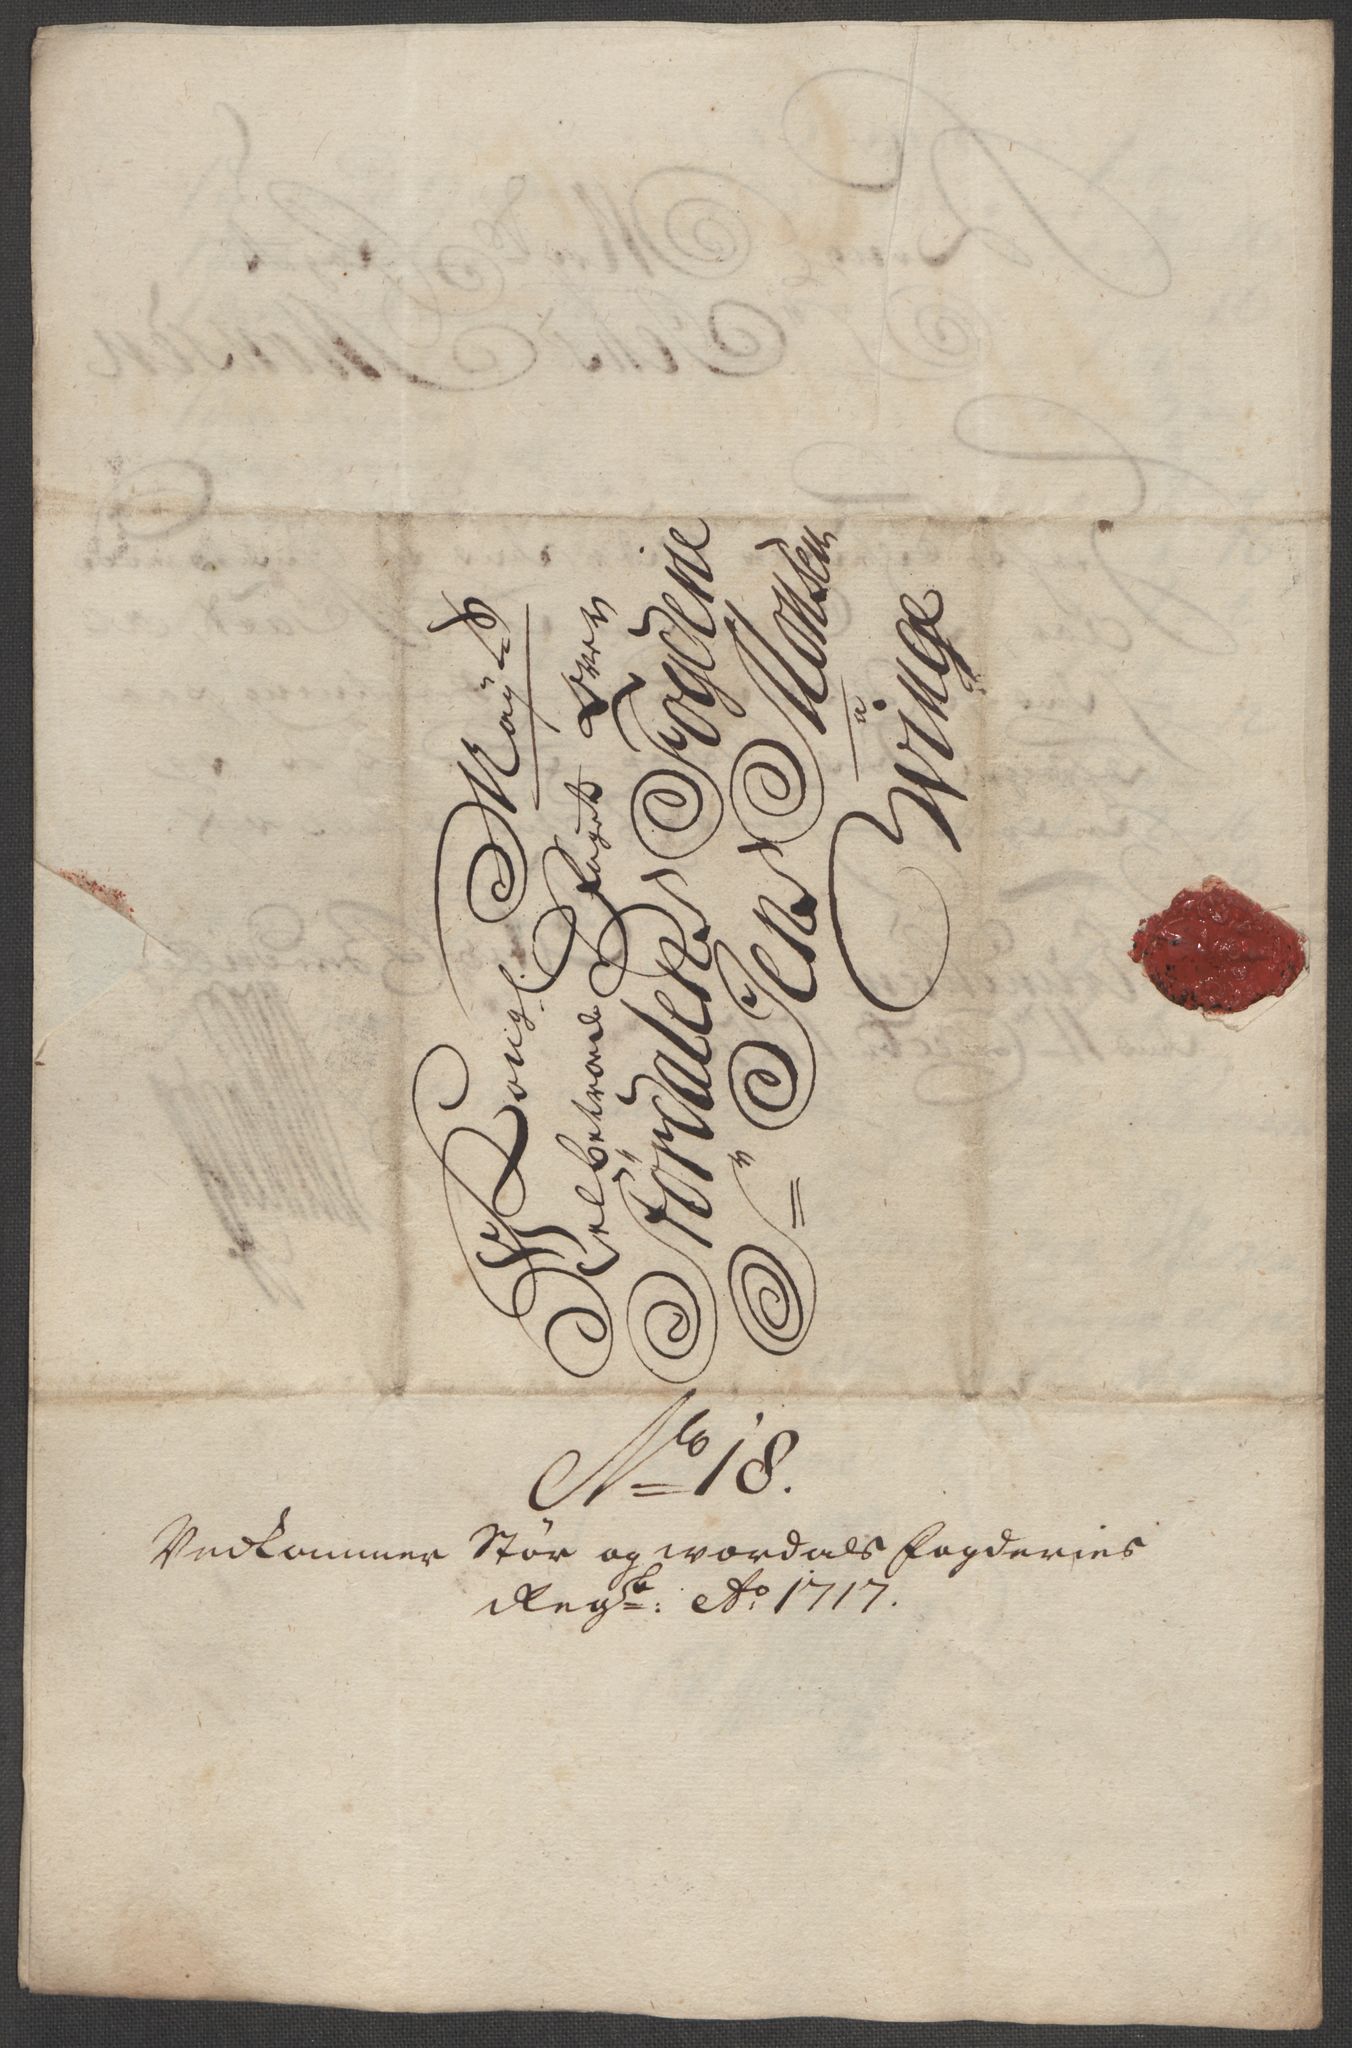 Kongl. Mayts
Velbetroede Fogets over
Størdalens Fogderie
Sr Jens Monsen
a
Winge
No 18.
Vedkommer Stør og wordals fogderies
Regsk: Ao 1717.